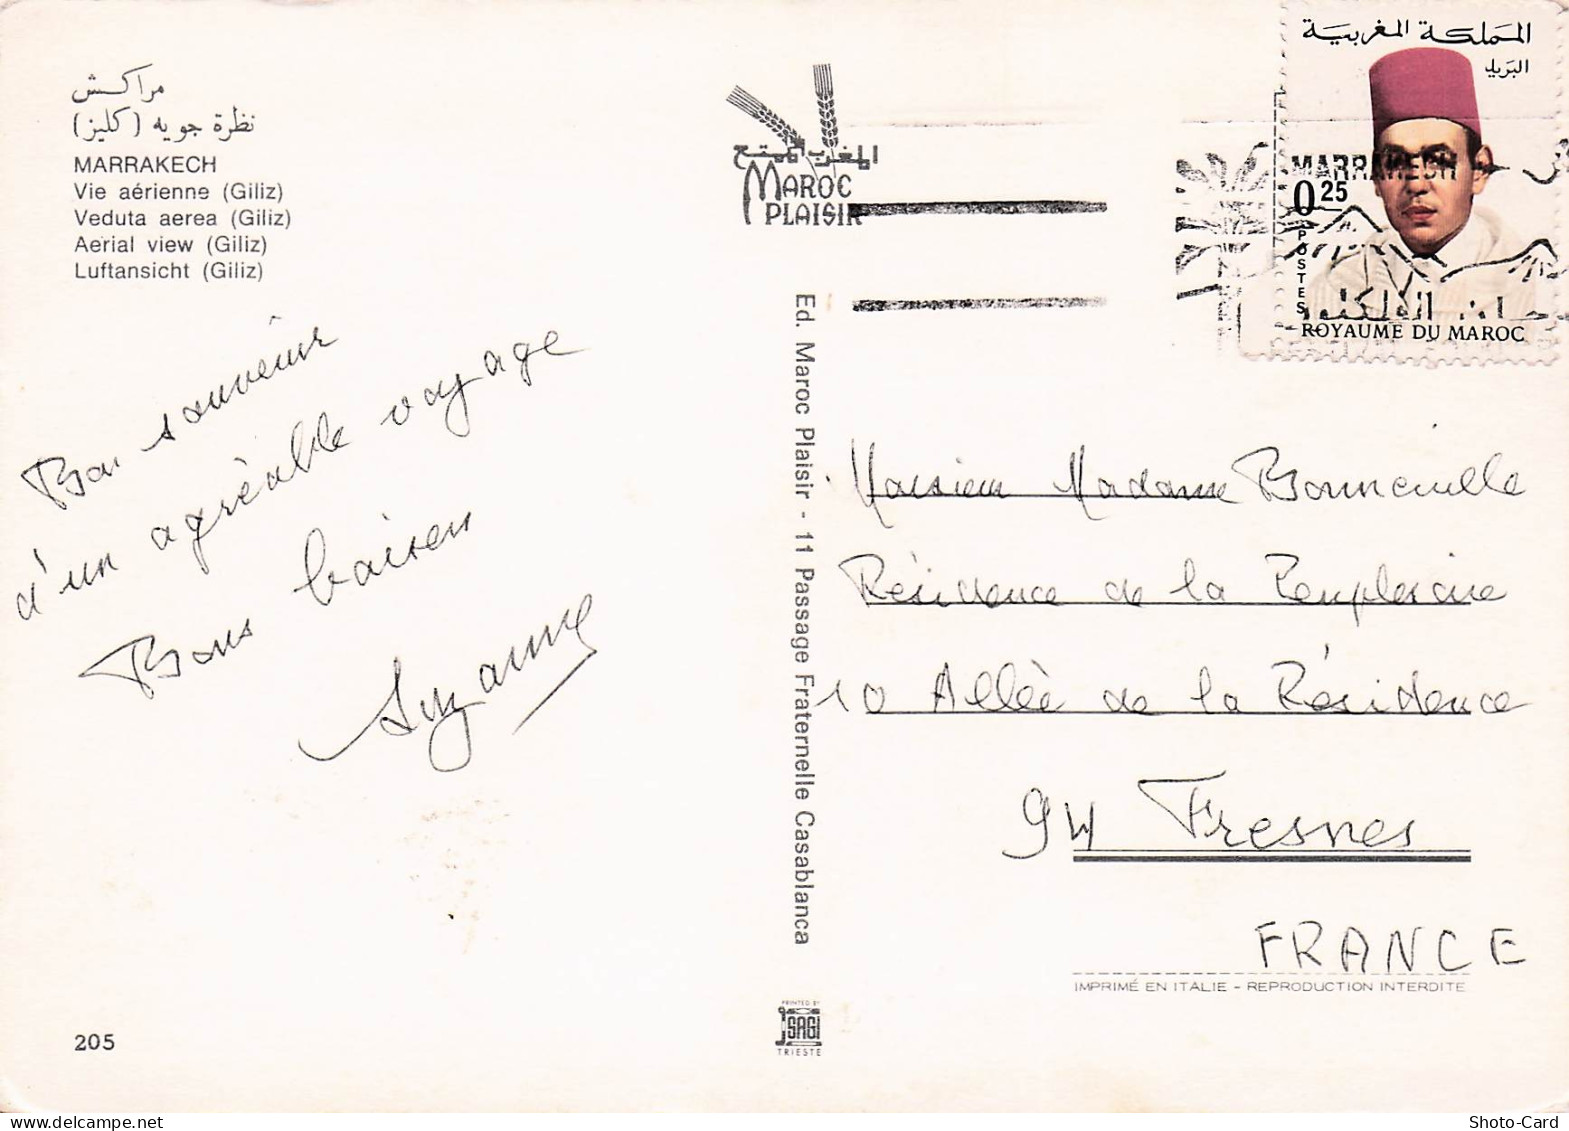 مراكش
نظرة جويه (كليز)
MARRAKECH
Vie aérienne (Giliz)
Veduta aerea (Giliz)
Aerial view (Giliz)
Luftansicht (Giliz)
Bon souvenir
d'un agréable voyage
Bons baisers
Suzanne
205
المغرب الممتع
MAROC
PLAISIR
Ed. Maroc Plaisir - 11 Passage Fraternelle Casablanca
PRINTED BY
SAGI
TRIESTE
المملكة المغربية
البريد
MARRAKECH
0.25
POSTES
ROYAUME DU MAROC
Monsieur Madame Bonneville
Résidence de la
10 Allée de la Résidence
94 Fresnes
FRANCE
IMPRIMÉ EN ITALIE - REPRODUCTION INTERDITE
Shoto-Card